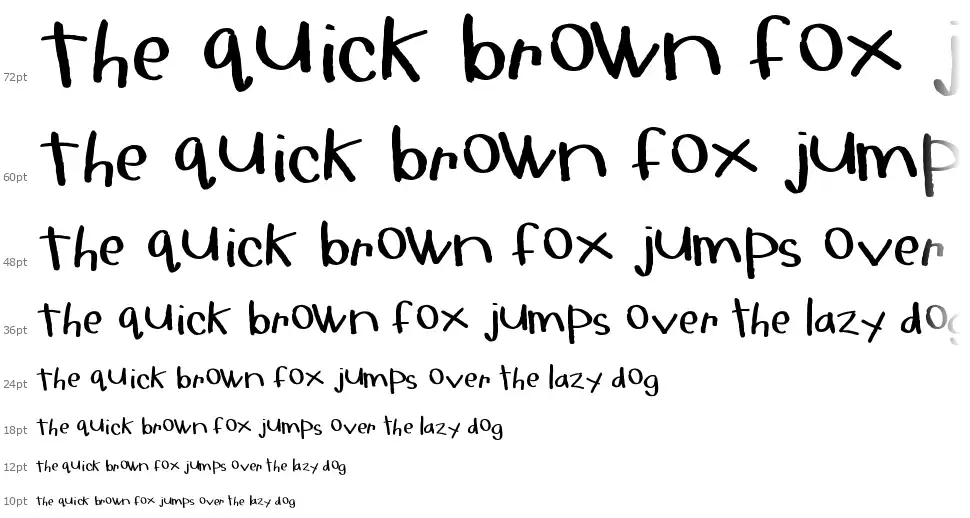 72pt the quick brown fox j
60pt the quick brown fox jump
48pt the quick brown fox jumps over
36pt the quick brown fox jumps over the lazy dog
24pt the quick brown fox jumps over the lazy dog
18pt the quick brown fox jumps over the lazy dog
12pt the quick brown fox jumps over the lazy dog
10pt the quick brown fox jumps over the lazy dog